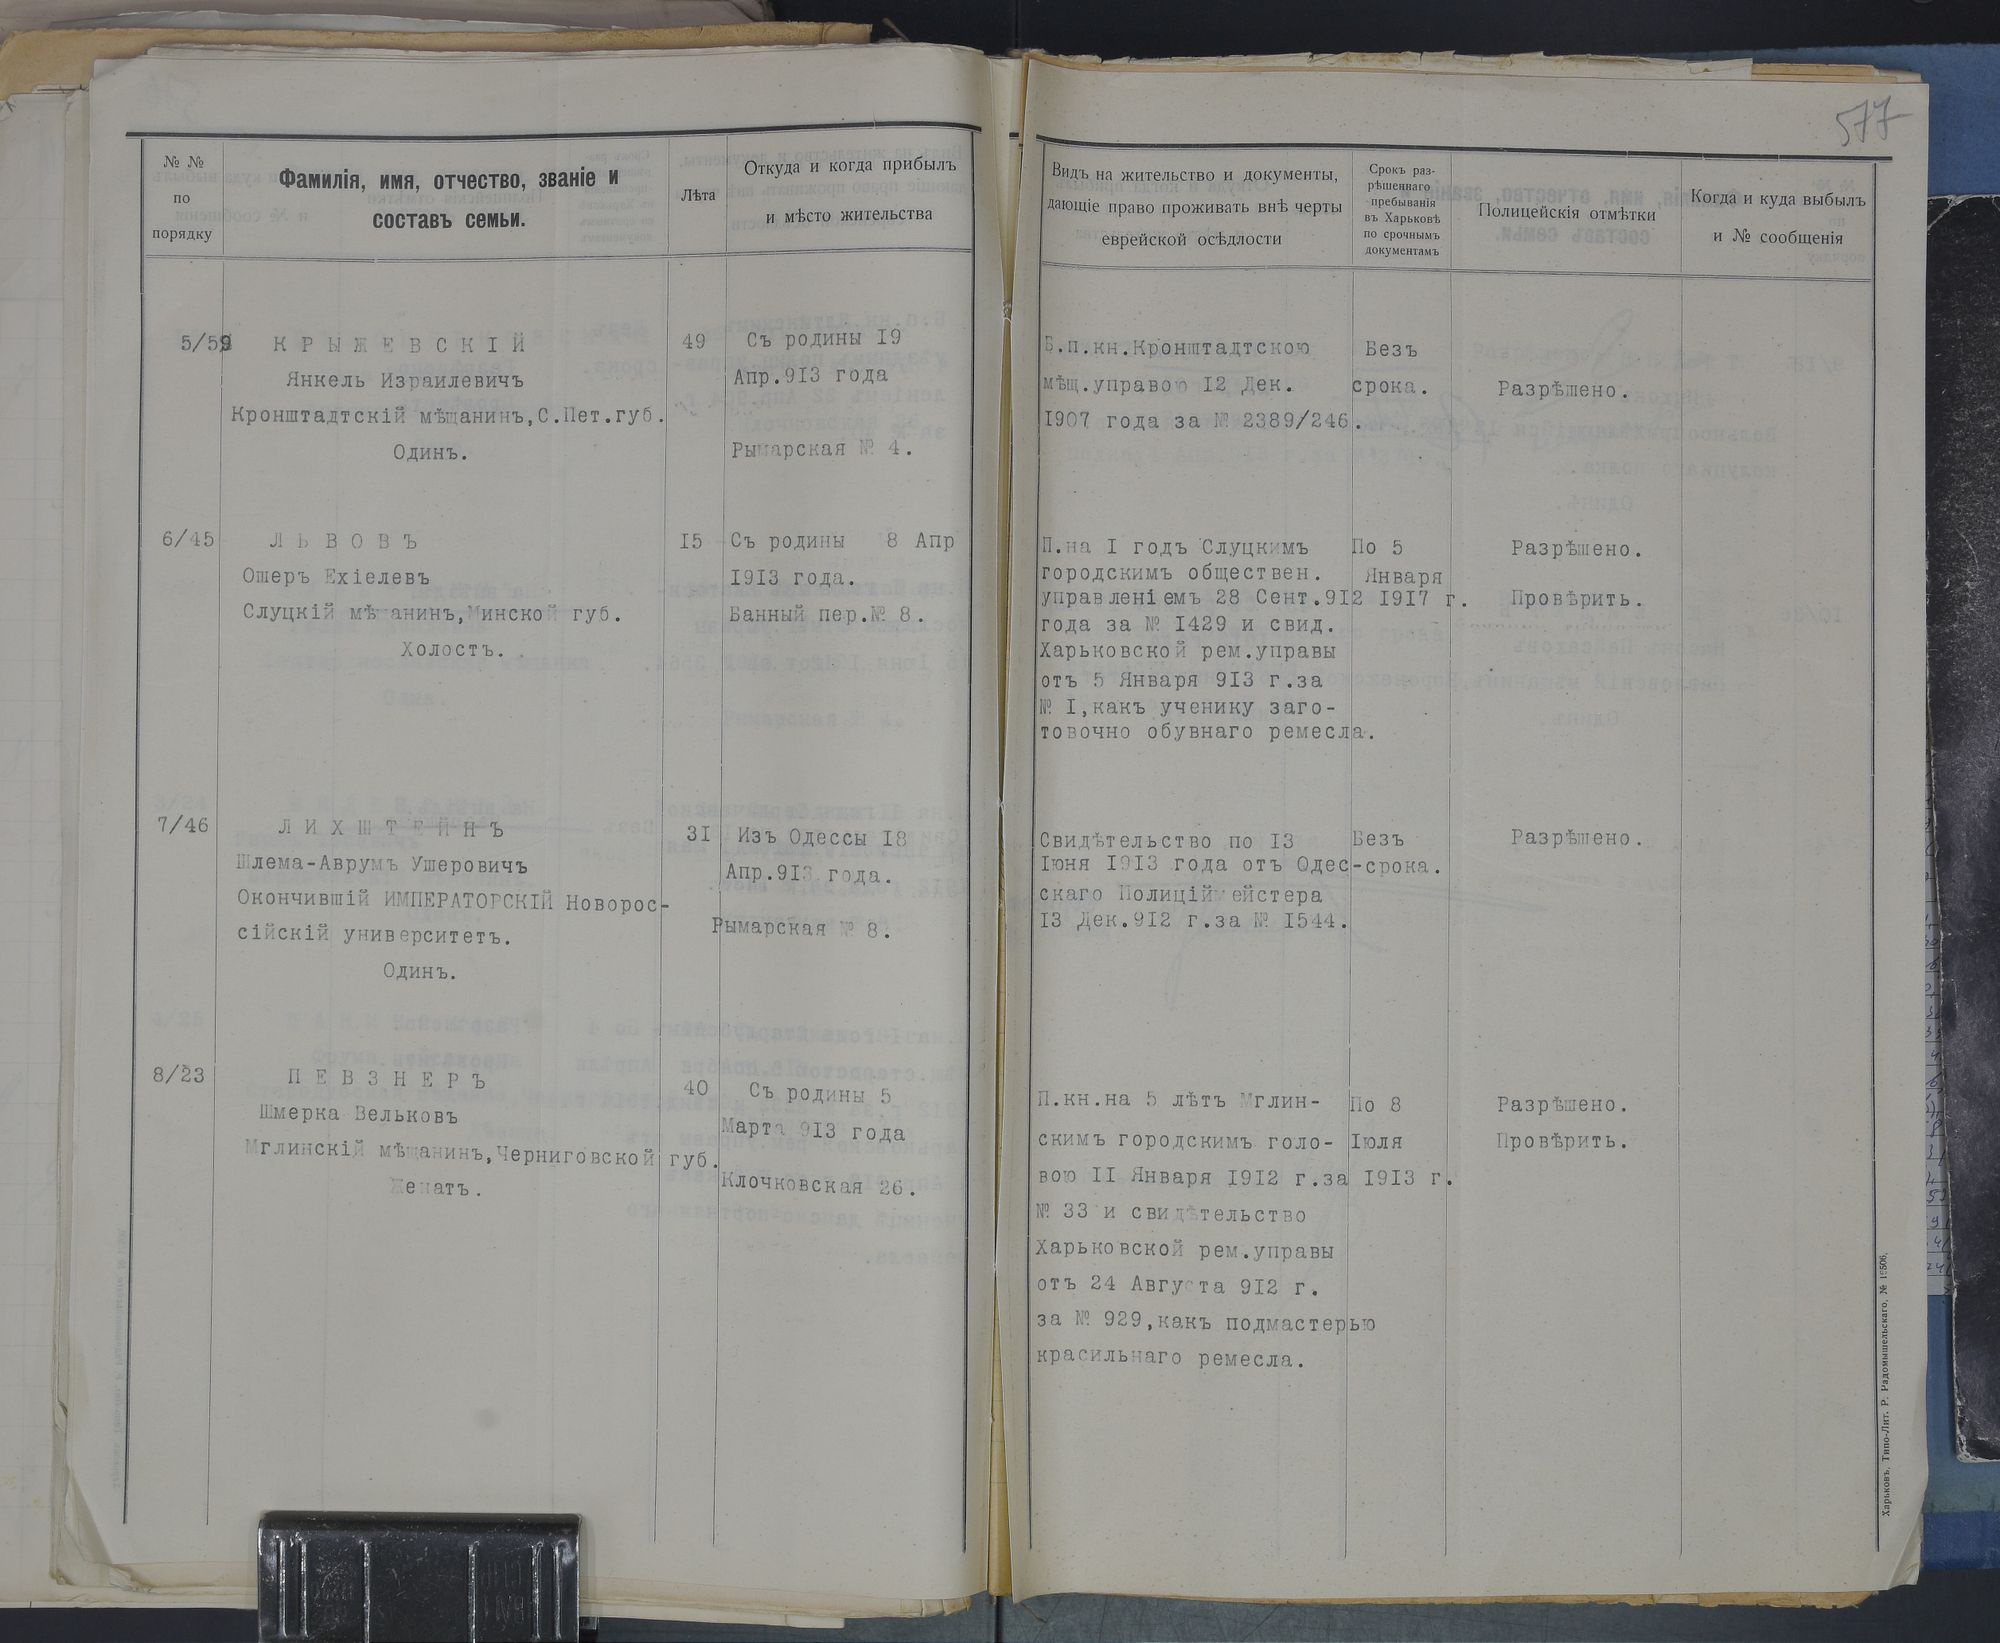 577
№ №
по
порядку
Фамилія, имя, отчество, званіе и
составъ семьи.
Лѣта
Откуда и когда прибылъ
и мѣсто жительства
Видъ на жительство и документы,
дающіе право проживать внѣ черты
еврейской осѣдлости
Срокъ раз-
рѣшеннаго
пребыванія
въ Харьковѣ
по срочнымъ
документамъ
Полицейскія отмѣтки
Когда и куда выбылъ
и № сообщенія
5/59
К Р Ы Ж Е В С К І Й
Янкель Израилевичъ
Кронштадтскій мѣщанинъ,С.Пет.губ.
Одинъ.
49
Съ родины I9
Апр.9I3 года
Рымарская № 4.
Б.п.кн.Кронштадтскою
мѣщ.управою I2 Дек.
I907 года за № 2389/246.
Безъ
срока.
Разрѣшено.
6/45
Л Ь В О В Ъ
Ошеръ Ехіелевъ
Слуцкій мѣщанинъ,Минской губ.
Холостъ.
I5
Съ родины 8 Апр
I9I3 года.
Банный пер.№ 8.
П.на I годъ Слуцкимъ
городскимъ обществен.
управленіемъ 28 Сент.9I2
года за № I429 и свид.
Харьковской рем.управы
отъ 5 Января 9I3 г.за
№ I,какъ ученику заго-
товочно обувнаго ремесла.
По 5
Января
I9I7 г.
Разрѣшено.
Провѣрить.
7/46
Л И Х Ш Т Е Й Н Ъ
Шлема-Аврумъ Ушеровичъ
Окончившій ИМПЕРАТОРСКІЙ Новорос-
сійскій университетъ.
Одинъ.
3I
Изъ Одессы I8
Апр.9I3 года.
Рымарская № 8.
Свидѣтельство по I3
Іюня I9I3 года отъ Одес-
скаго Полиціймейстера
I3 Дек.9I2 г.за № I544.
Безъ
срока.
Разрѣшено.
8/23
П Е В З Н Е Р Ъ
Шмерка Вельковъ
Мглинскій мѣщанинъ,Черниговской губ.
Женатъ.
40
Съ родины 5
Марта 9I3 года
Клочковская 26.
П.кн.на 5 лѣтъ Мглин-
скимъ городскимъ голо-
вою II Января I9I2 г.за
№ 33 и свидѣтельство
Харьковской рем.управы
отъ 24 Августа 9I2 г.
за № 929,какъ подмастерью
красильнаго ремесла.
По 8
Іюля
I9I3 г.
Разрѣшено.
Провѣрить.
Харьковъ, Типо-Лит. Р. Радомышельскаго,